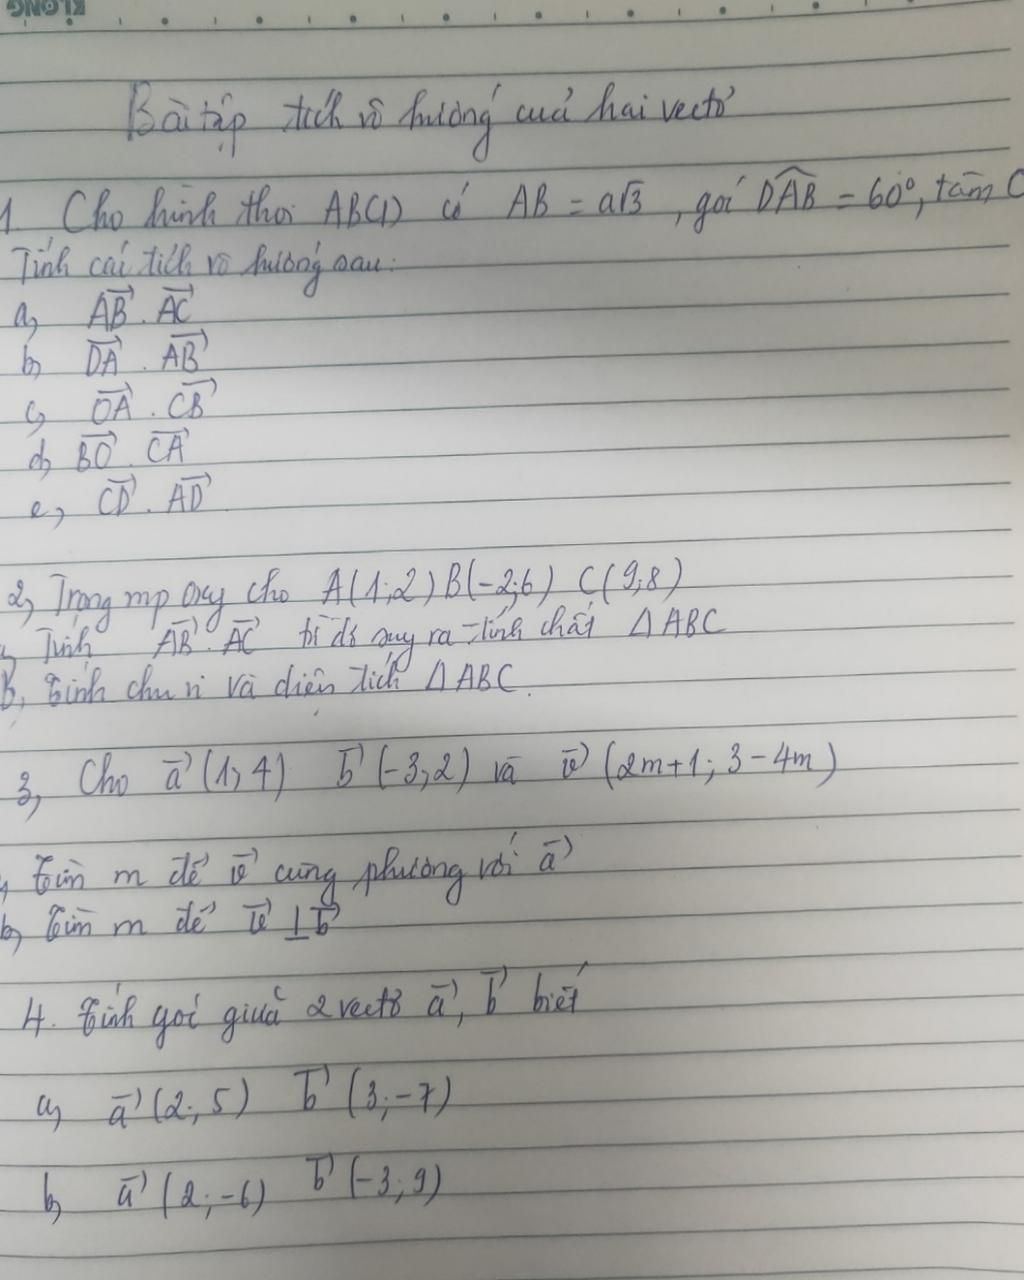 KLONG
Bài tập tích vô hướng của hai vectơ
1. Cho hình thoi ABCD có AB = a√3, góc DAB = 60°, tâm O
Tính các tích vô hướng sau:
a, AB . AC
b, DA . AB
c, OA . CB
d, BO . CA
e, CD . AD
2, Trong mp Oxy cho A(1;2) B(-2;6) C(9;8)
a, Tính AB . AC từ đó suy ra tính chất Δ ABC
b, Tính chu vi và diện tích Δ ABC.
3, Cho a (1; 4) b (-3; 2) và v (2m+1; 3-4m)
a, Tìm m để v cùng phương với a
b, Tìm m để v ⊥ b
4. Tính góc giữa 2 vectơ a, b biết
a, a (2; 5) b (3; -7)
b, a (2; -6) b (-3; 9)